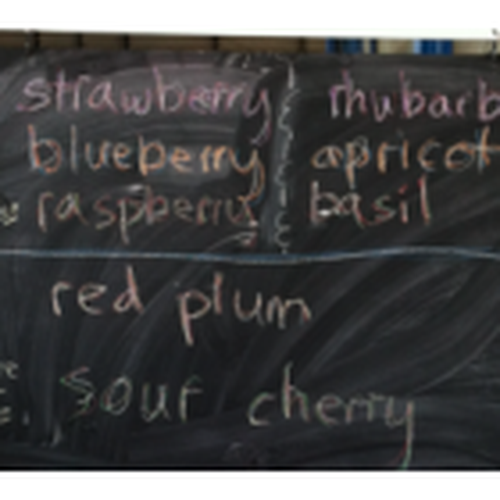 strawberry rhubarb
blueberry apricot
raspberry basil
red plum
sour cherry